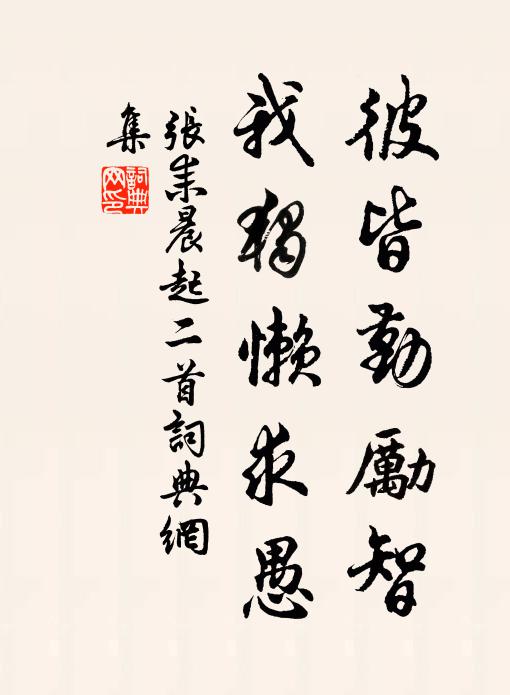 彼皆勤勵智
我獨懶求愚
張耒晨起二首詞典網
集
詞典网印